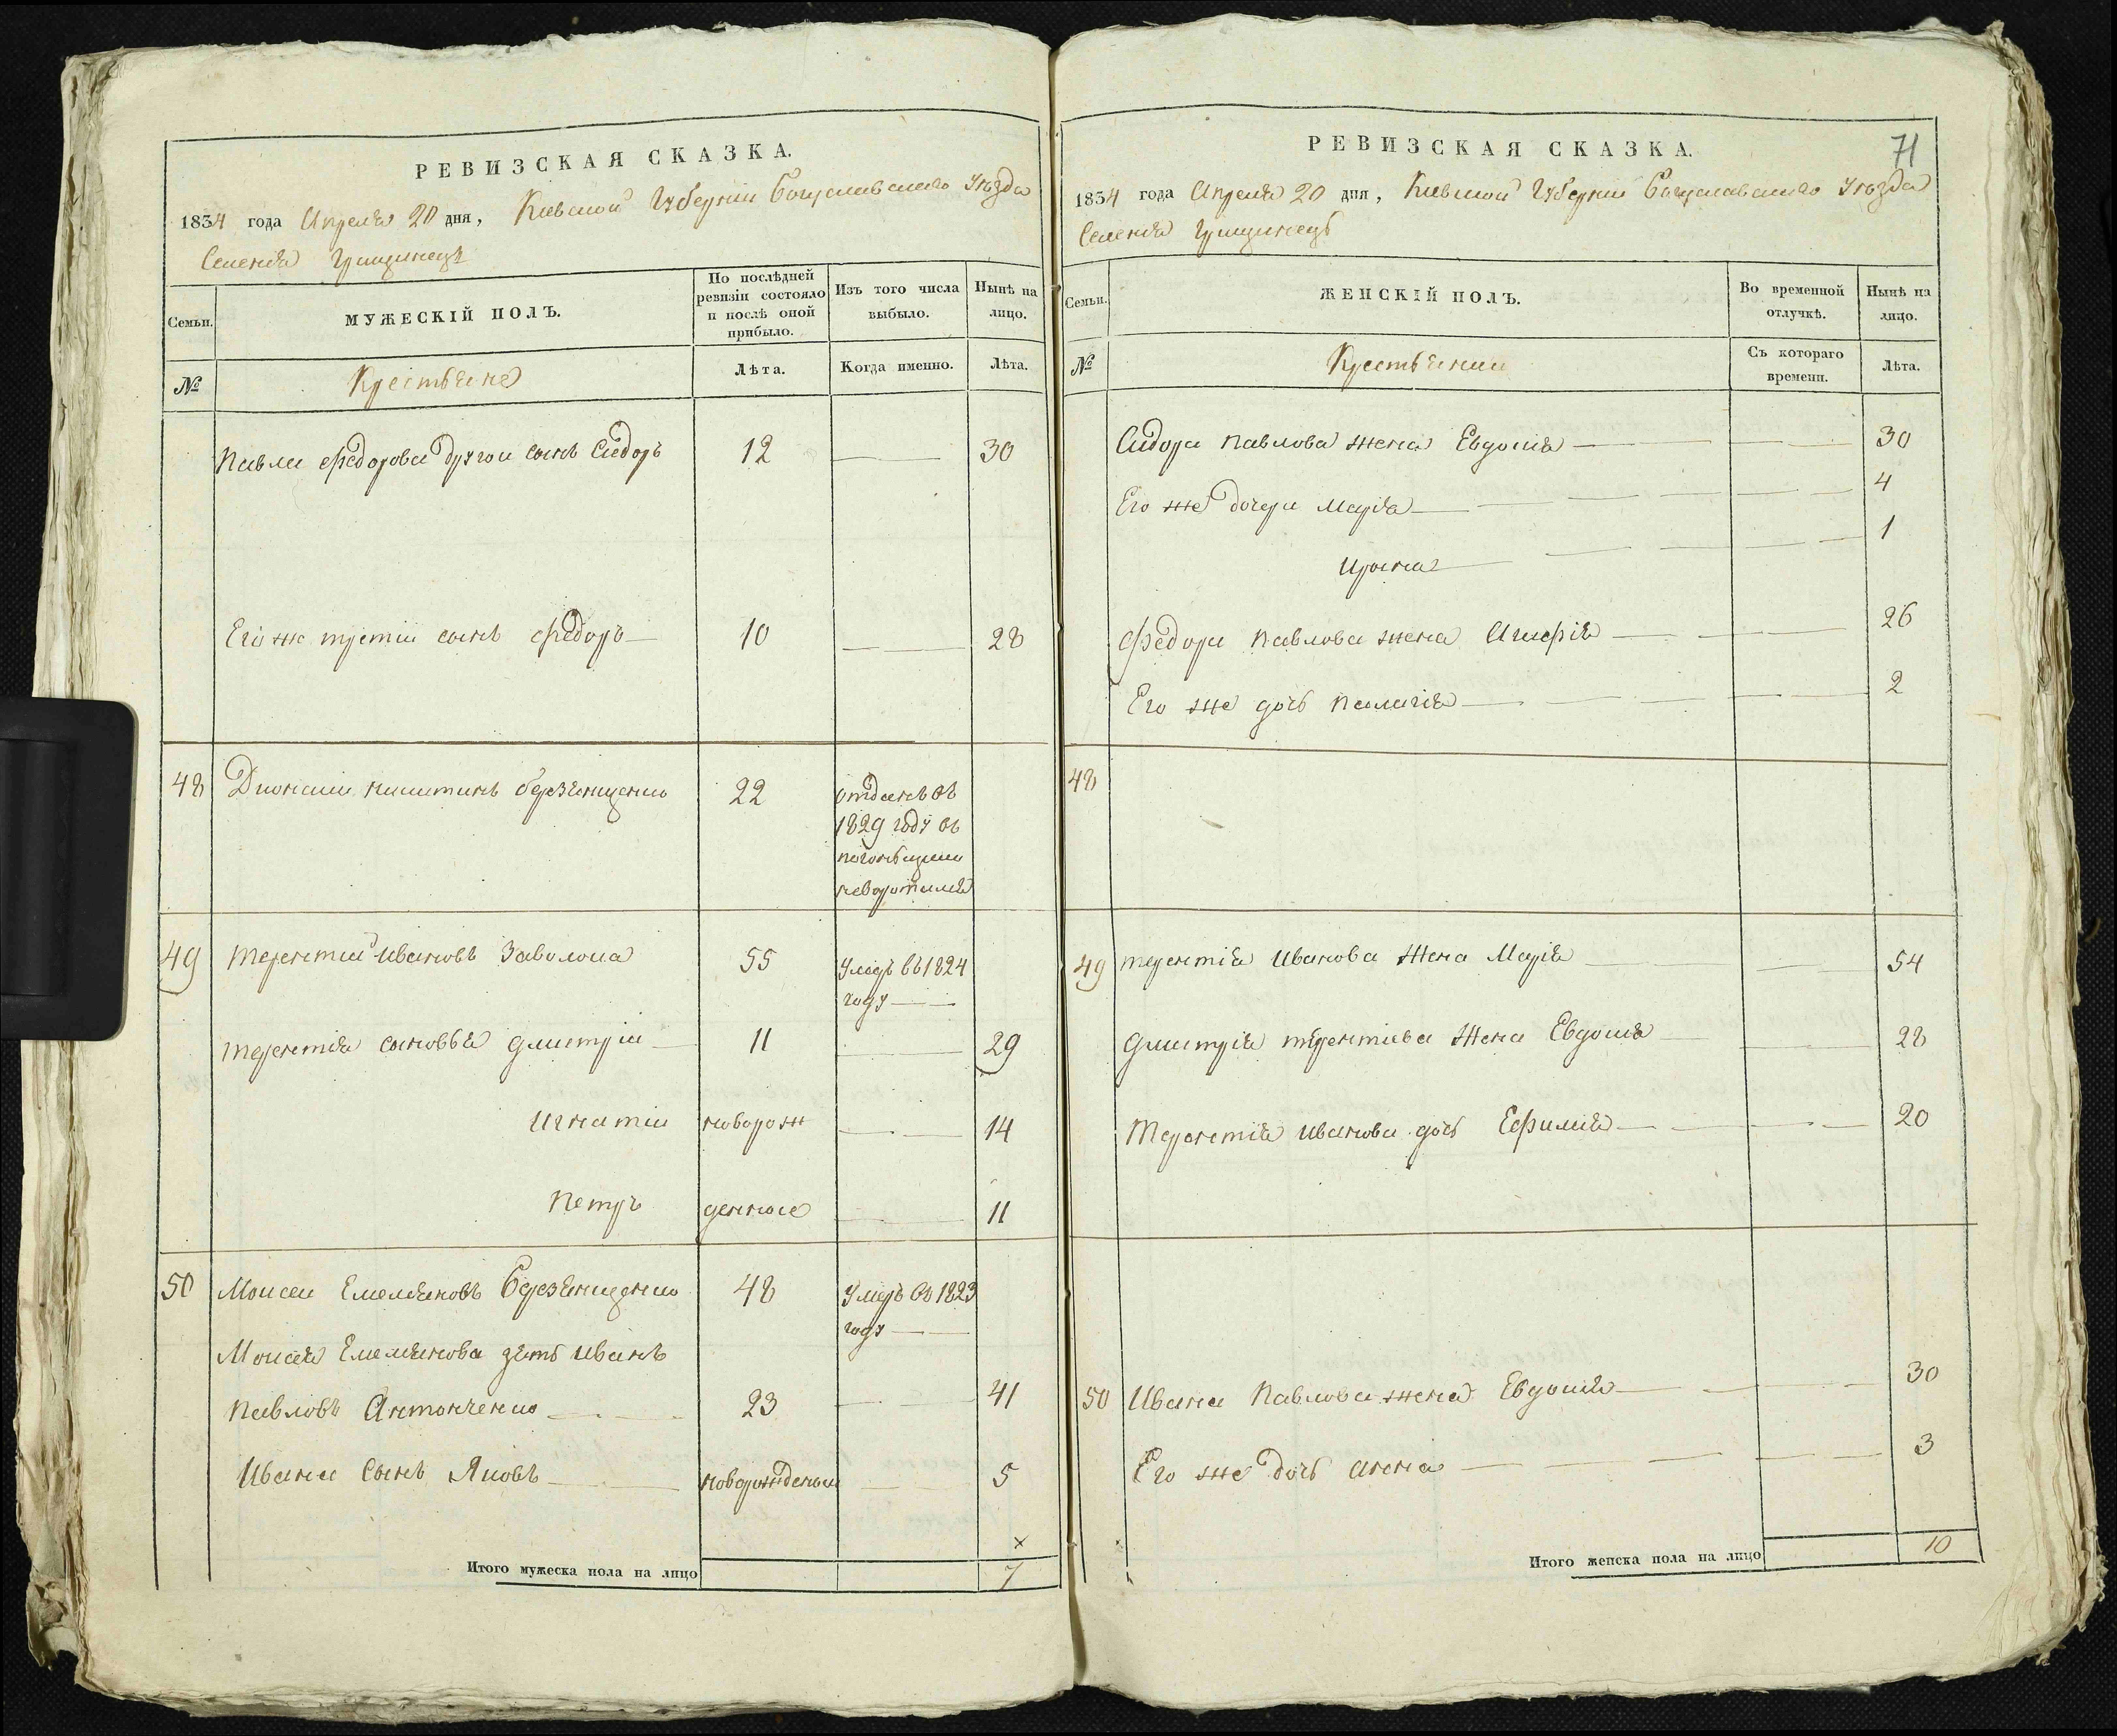 РЕВИЗСКАЯ СКАЗКА.
1834 года Апреля 20 дня, Киевской Губернии Богуславского Уезда
Селения Грищинецъ
Семьи.
МУЖЕСКІЙ ПОЛЪ.
По послѣдней ревизіи состояло и послѣ оной прибыло.
Изъ того числа выбыло.
Нынѣ на лицо.
№
Крестьяне
Лѣта.
Когда именно.
Лѣта.
Павла Федорова другои сынъ Сидоръ 12 — 30
Его же третіи сынъ Федоръ 10 — 28
48 Дионисии Никитинъ Березяниченко 22 отданъ въ
1829 году въ
погонщики
невозротился
49 Терентии Ивановъ Заволока 55 Умеръ въ 1824
году
Терентія сыновья Дмитріи 11 — 29
Игнатіи новорож — 14
Петръ денные — 11
50 Моисеи Емельяновъ Березяниченко 48 Умеръ въ 1823
году
Моисея Емельянова зять Иванъ
Павловъ Антонченко 23 — 41
Ивана Сынъ Яковъ новорожденыи — 5
×
Итого мужеска пола на лицо 7
РЕВИЗСКАЯ СКАЗКА.
71
1834 года Апреля 20 дня, Киевской Губернии Богуславского Уезда
Селения Грищинецъ
Семьи.
ЖЕНСКІЙ ПОЛЪ.
Во временной отлучкѣ.
Нынѣ на лицо.
№
Крестьянки
Съ котораго времени.
Лѣта.
Сидора Павлова жена Евдокия — 30
Его же дочери Марія — 4
Ирина — 1
Федора Павлова жена Агафія — 26
Его же дочь Пелагія — 2
48
49 Терентія Иванова Жена Марія — 54
Дмитрія Терентіева Жена Евдокія — 28
Терентія Иванова дочь Ефимия — 20
50 Ивана Павлова жена Евдокія — 30
Его же дочь Анна — 3
Итого женска пола на лицо 10